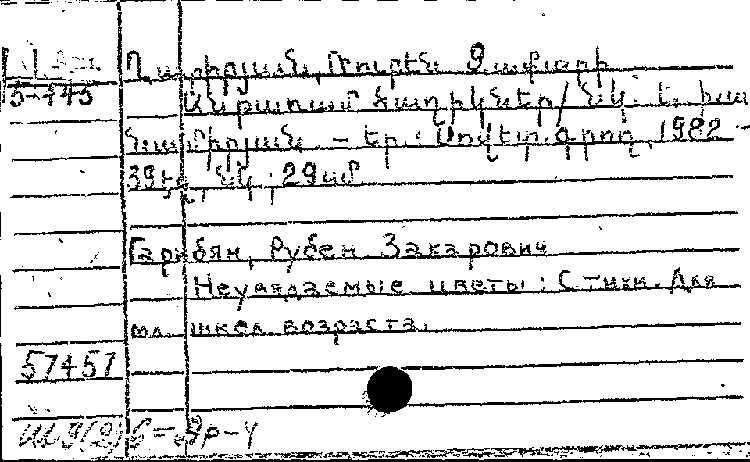 Ղարիբյան, Ռուբեն Զաքարի
5-445
Անթառամ ծաղիկներ / Նկ. Ե.
Նամիրյան. - Եր.: Սովետ. գրող, 1982 -
39 էջ, նկ.; 29 սմ
Гарибян, Рубен Закарович
Неувядаемые цветы: Стихи. Для
мл. шкел. возраста.
57457